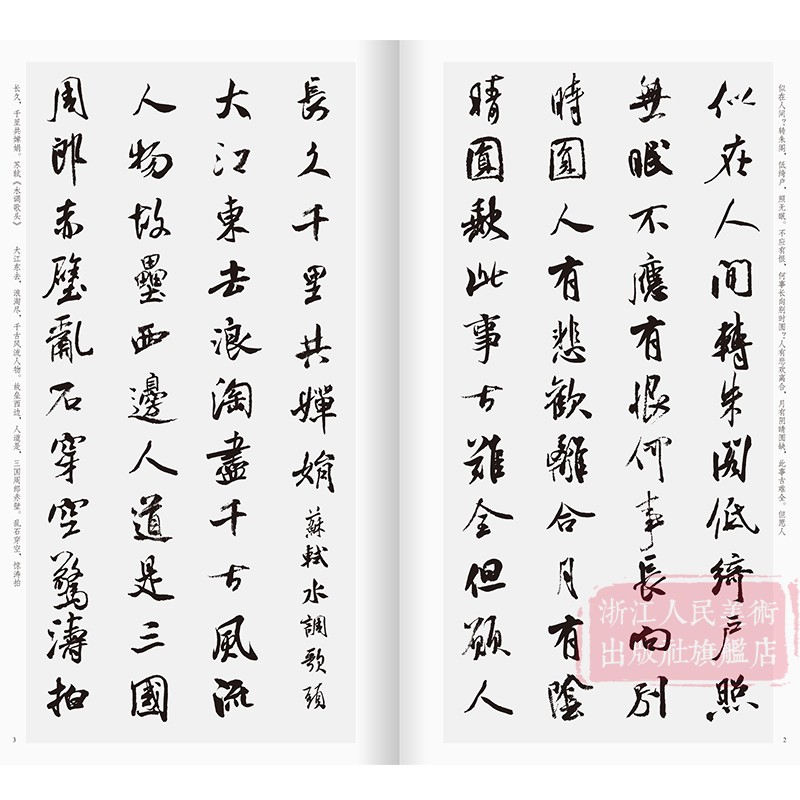 似在人间？转朱阁，低绮户，照无眠。不应有恨，何事长向别时圆？人有悲欢离合，月有阴晴圆缺，此事古难全。但愿人
似在人間轉朱閣低綺戶照
無眠不應有恨何事長向別
時圓人有悲歡離合月有陰
晴圓缺此事古難全但願人
2
長久千里共嬋娟蘇軾水調歌頭
大江東去浪淘盡千古風流
人物故壘西邊人道是三國
周郎赤壁亂石穿空驚濤拍
长久，千里共婵娟。苏轼《水调歌头》 大江东去，浪淘尽，千古风流人物。故垒西边，人道是，三国周郎赤壁。乱石穿空，惊涛拍
3
浙江人民美術
出版社旗艦店